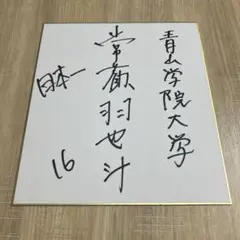 青山学院大学
常廣羽也斗
日本一
16